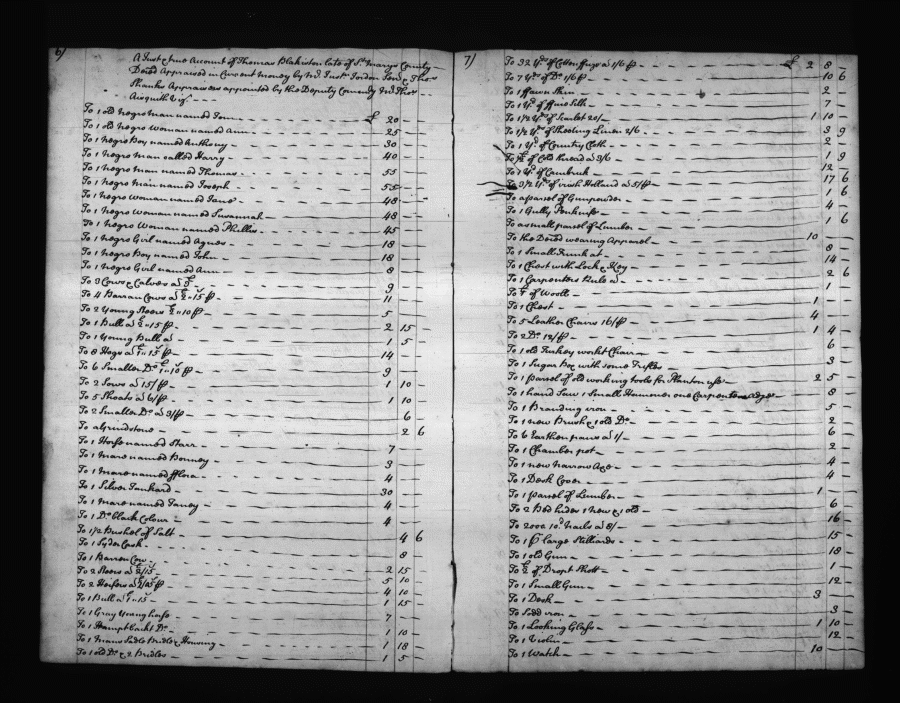 6)
A Just & true Account of Thomas Blakiston late of St. Marys County
Deced Appraised in Current money by
Thanks Appraisers appointed by the Deputy Comisry
To 1 old negro man named Tom 20
To 1 old negro woman named Ann 25
To 1 negro Boy named Anthony 30
To 1 negro man called Harry 40
To 1 negro man named Thomas 55
To 1 negro man named Joseph 55
To 1 negro woman named Jane 48
To 1 negro woman named Susannah 48
To 1 negro Woman named Phillis 45
To 1 negro Girl named Agnes 18
To 1 negro Boy named John 18
To 1 negro Girl named Ann 8
To 3 Cows & Calves a £3 9
To 4 Barran Cows a 11
To 2 Young Steers 5
To 1 Bull a £2"15 2 15
To 1 Young Bull a 1 5
To 8 Hogs a £1"15 14
To 6 Smaller Do £1"10 9
To 2 Sows a 15/ 1 10
To 5 Shoats a 6/ 1 10
To 2 Smaller Do a 3/ 6
To a Grindstone 2 6
To 1 Horse named Starr 7
To 1 mare named Bonney 3
To 1 mare named fflora 4
To 1 Silver Tankard 30
To 1 mare named Fancy 4
To 1 Do black Colour 4
To 1/2 Bushel of Salt
To 1 Syder Cask 4 6
To 1 Barren Cow 8
To 2 Steers a 2 15
To 2 Heifers a 5 10
To 1 Bull a £1"15 4 10
To 1 Gray Young horse 1 15
To 1 Humpt back'd Do 7
To 1 mans Sadle Bridle & Housing 1 10
To 1 old Do & 2 Bridles 1 18
1 5
7)
To 32 Yds of Cotton a 1/6 £ 2 8
To 7 Yds of Do 1/6 10 6
To 1 ffawn Skin 2
To 1 Yd of ffine Silk 7
To 1 1/2 Yds of Scarlet 20/ 1 10
To 1 1/2 Yds of Sheeting Linen 2/6 3 9
To 1 Yd of Country Cloth 2
To of Cold thread a 3/6 1 9
To 1 Yd of Cambrick 12
To 3 1/2 Yds of irish Holland a 5/ 17 6
To a parcel of Gunpowder 1 6
To 1 Gully Penknife 4
To a small parcel of Lumber 1 6
To the Deced wearing Apparel 10
To 1 Small Trunk at 8
To 1 Chest with Lock & Key 14
To 1 Carpenters Rule a 2 6
To of Wooll 1
To 1 Chest 1
To 5 Leather Chairs 16/ 4
To 2 Do 12/ 1 4
To 1 old Turkey workt Chair 6
To 1 Sugar Box with some Trifles 3
To 1 parcel of old working tools for Plantn use 2 5
To 1 hand Saw 1 Small Hammer one Carpenters adze 8
To 1 Branding iron 5
To 1 new Brush & 1 old Do 2
To 6 Earthen pans a 1/ 6
To 1 Chamber pot 2
To 1 new narrow Axe 4
To 1 Desk Cover 4
To 1 parcel of Lumber 1
To 2 Bed hides 1 new & 1 old 6
To 2000 10d Nails a 8/ 16
To 1 pr large Stilliards 15
To 1 old Gun 18
To of Dropt Shott 1
To 1 Small Gun 12
To 1 Desk 3
To Sadd iron 3
To 1 Looking Glass 1 10
To 1 Violin 12
To 1 Watch 10